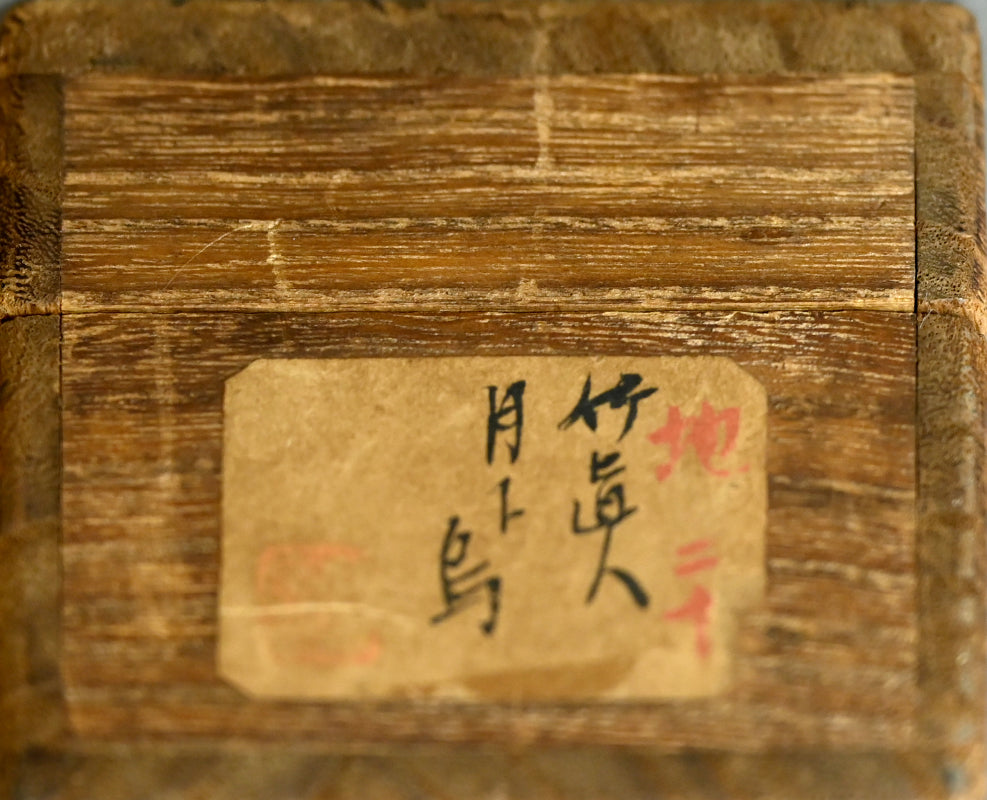 地二十
竹眞人
月下烏